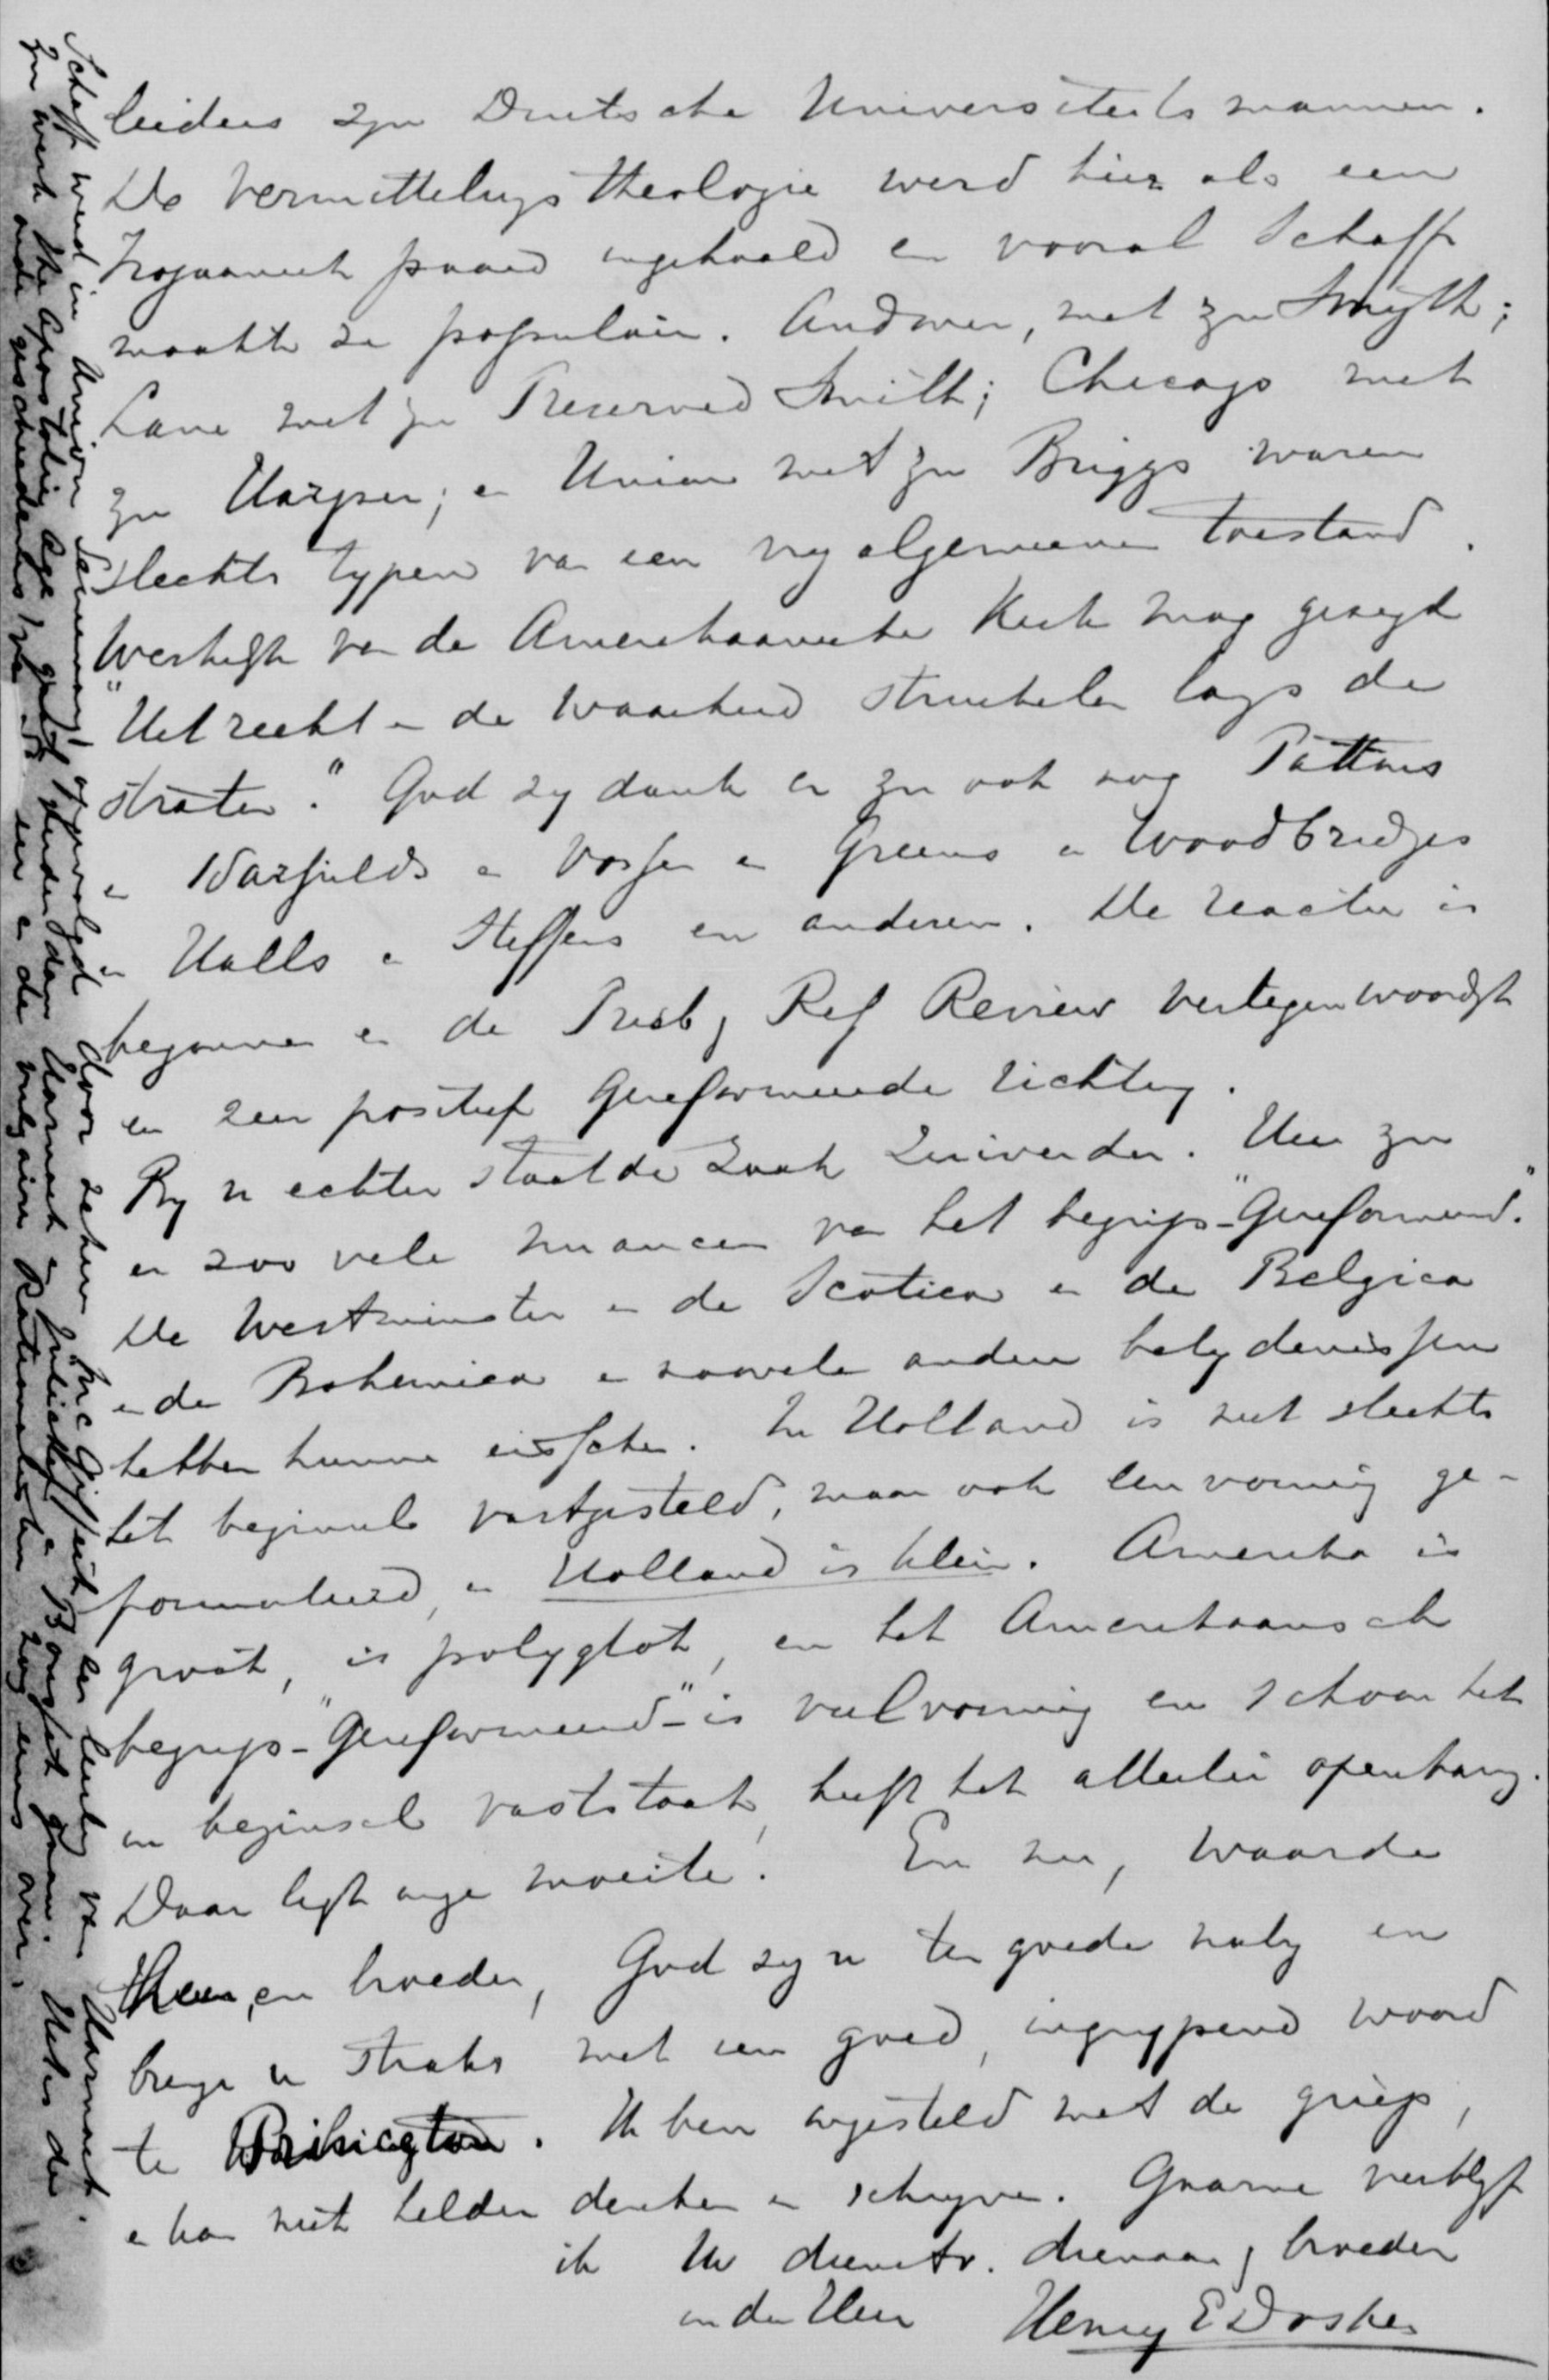 leiders zyn Duitsche Universiteits mannen.
De Vermittelungs theologie werd hier als een
Trojaansch paard ingehaald en vooral Schaff
maakte ze populair. Andover, met zyn Smyth;
Lane met zyn Preserved Smith; Chicago met
zyn Harper; en Union met zyn Briggs waren
slechts typen van een vry algemeenen toestand.
Werkelyk van de Amerikaansche Kerk mag gezegd
"Het recht en de waarheid struikelen langs de
straten." God zy dank er zyn ook nog Pattons
en Warfields en Vossen en Greens en Woodbridges
en Halls en Steffens en anderen. De reactie is
begonnen en de Presb & Ref Review vertegenwoordigt
een zeer positief Gereformeerde richting.
By u echter staat de zaak zuiverder. Hier zyn
er zoo vele nuancen van het begrip - "Gereformeerd."
De Westminster en de Scotica en de Belgica
en de Bohemica en zoovele andere belydenissen
hebben hunne eischen. In Holland is niet slechts
het beginsel vastgesteld, maar ook eenvormig ge-
formuleerd, en Holland is klein. Amerika is
groot, is polyglot, en het Amerikaansch
begrip - "Gereformeerd" - is veelvormig en schoon het
in beginsel vaststaat, heeft het allerlei openbaring.
Daar ligt onze moeite. En nu, waarde
Heer, en broeder, God zy u ten goede naby en
brenge u straks met een goed, ingrypend woord
te Princeton. Ik ben ongesteld met de griep,
en kan niet helder denken en schryven. Gaarne verblyf
ik Uw dienstv. dienaar & broeder
in den Heer Henry E Dosker
Schaff werd in Union Seminary, opgevolgd door zekere McGiffert een leerling van Harnack.
zyn werk The Apostolic Age, gaat verder dan Harnack en Jülicher en Bousset gaan. Het is de
oude geschiedenis, zie en de vulgaire Rationalisten nog eens over.